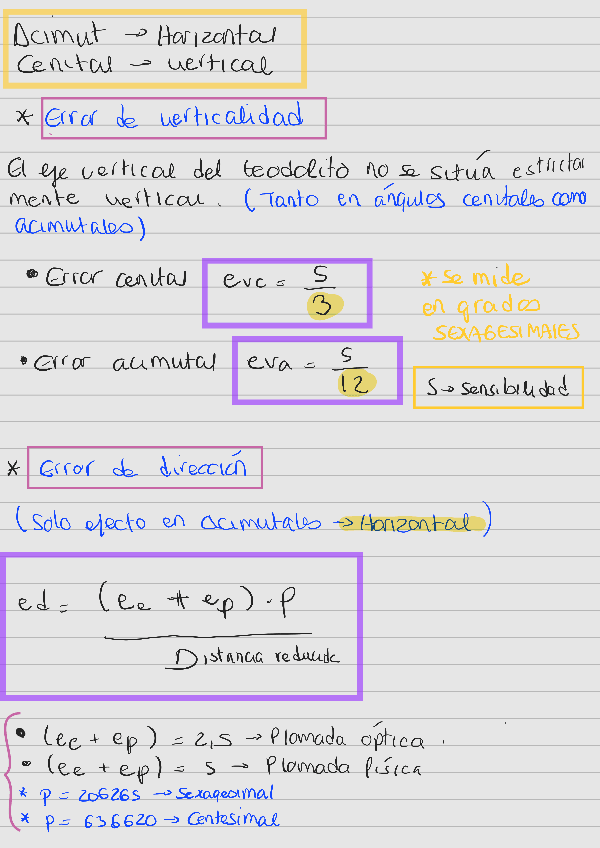 Acimut → Horizontal
Cenital → vertical
* Error de verticalidad
El eje vertical del teodolito no se sitúa estricta
mente vertical. (Tanto en ángulos cenitales como
acimutales)
• Error cenital evc = S/3
* se mide
en grados
SEXAGESIMALES
• Error acimutal eva = S/12
S → sensibilidad
* Error de dirección
(Solo efecto en acimutales → Horizontal)
ed = (ee + ep) · P
Distancia reducida
• (ee + ep) = 2,5 → Plomada óptica.
• (ee + ep) = 5 → Plomada física
* P = 206265 → Sexagesimal
* P = 636620 → Centesimal